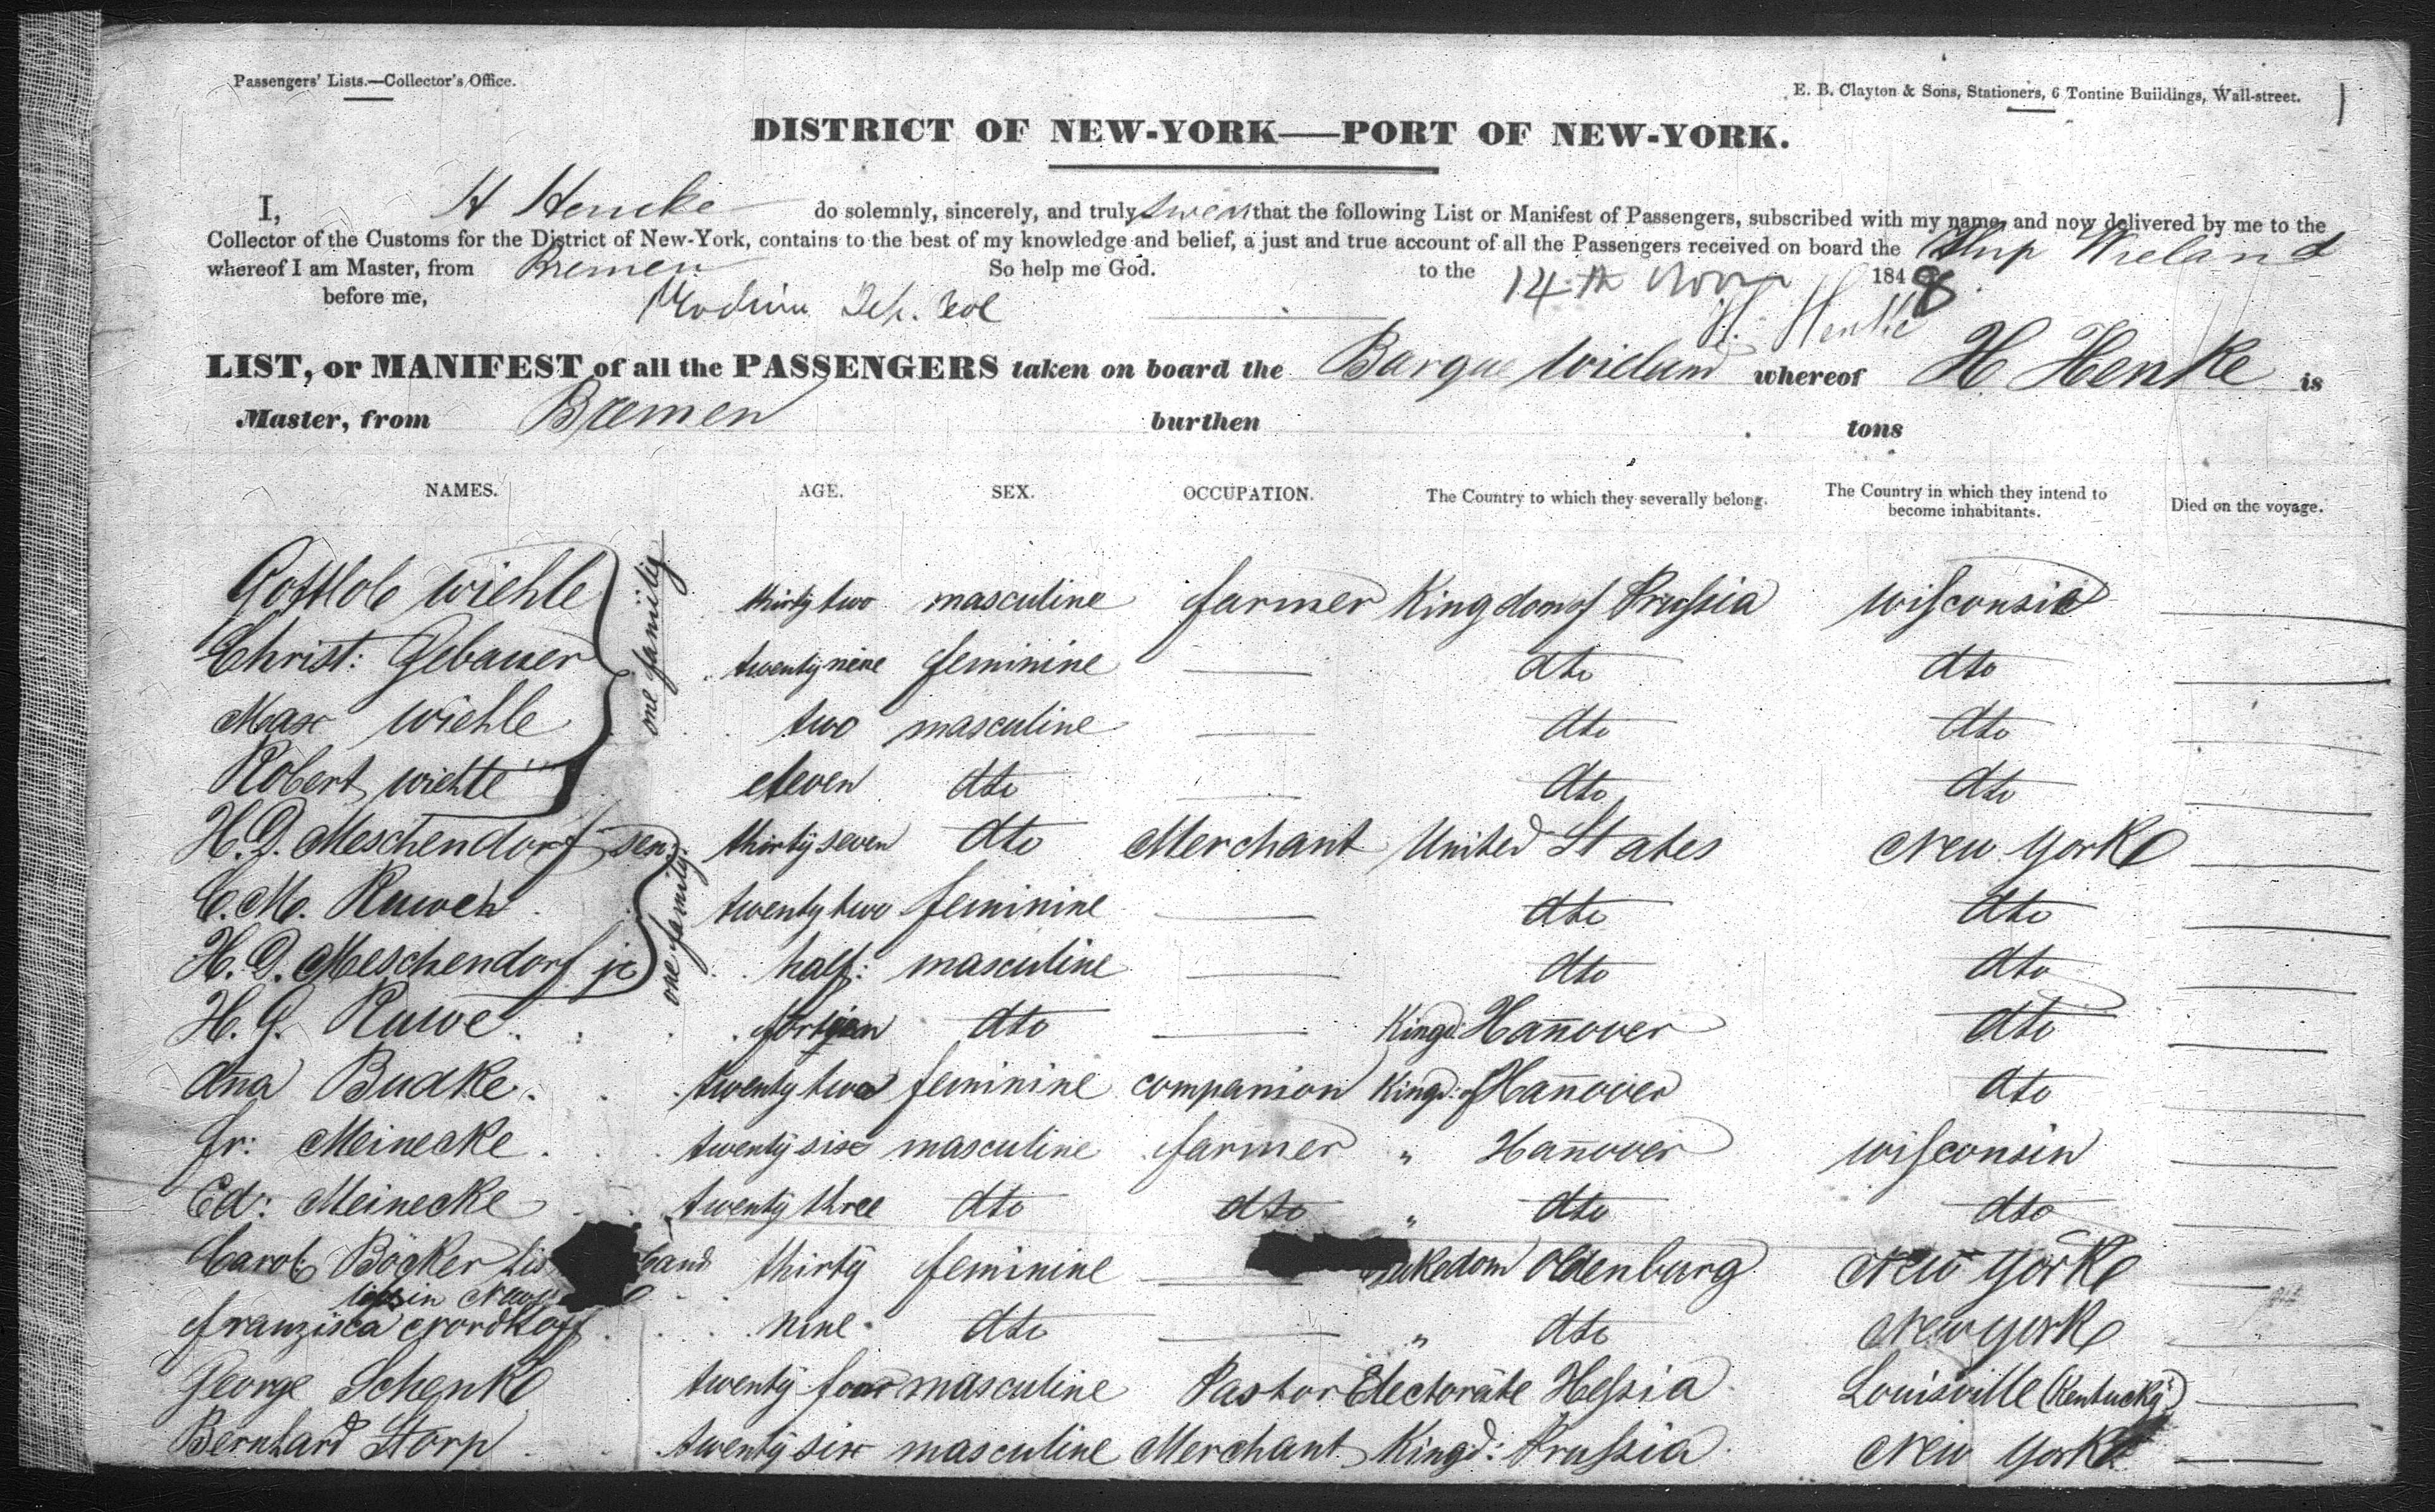 Passengers' Lists.—Collector's Office.
E. B. Clayton & Sons, Stationers, 6 Tontine Buildings, Wall-street.
DISTRICT OF NEW-YORK—PORT OF NEW-YORK.
I, H Hencke do solemnly, sincerely, and truly swear that the following List or Manifest of Passengers, subscribed with my name, and now delivered by me to the
Collector of the Customs for the District of New-York, contains to the best of my knowledge and belief, a just and true account of all the Passengers received on board the Ship Wieland
whereof I am Master, from Bremen So help me God. to the 14th Novr 1848
before me, H. Henke
LIST, or MANIFEST of all the PASSENGERS taken on board the Barque Wieland whereof H. Henke is
Master, from Bremen burthen tons
NAMES. AGE. SEX. OCCUPATION. The Country to which they severally belong. The Country in which they intend to become inhabitants. Died on the voyage.
one family
Gottlob Wiehle thirty two masculine farmer Kingdom of Prussia Wisconsin
Christ: Gebauer twenty nine feminine dto dto
Max Wiehle two masculine dto dto
Robert Wiehle eleven dto dto dto
one family
H. D. Meschendorf sen: thirty seven dto Merchant United States New York
C. M. Ruweh twenty two feminine dto dto
H. D. Meschendorf jr half: masculine dto dto
H. G. Ruwe dto Kingd: Hañover dto
Aña Budke twenty two feminine companion Kingd: of Hañover dto
Fr: Meinecke twenty six masculine farmer " Hañover Wisconsin
Ed: Meinecke twenty three dto dto " dto dto
Carol: Böcker thirty feminine Oldenburg New York
in New
Franzisca Nordhoff nine dto " dto New York
George Schenk twenty four masculine Pastor Electorate Hessia Louisville (Kentucky)
Bernhard Storp twenty six masculine Merchant Kingd: Prussia New York